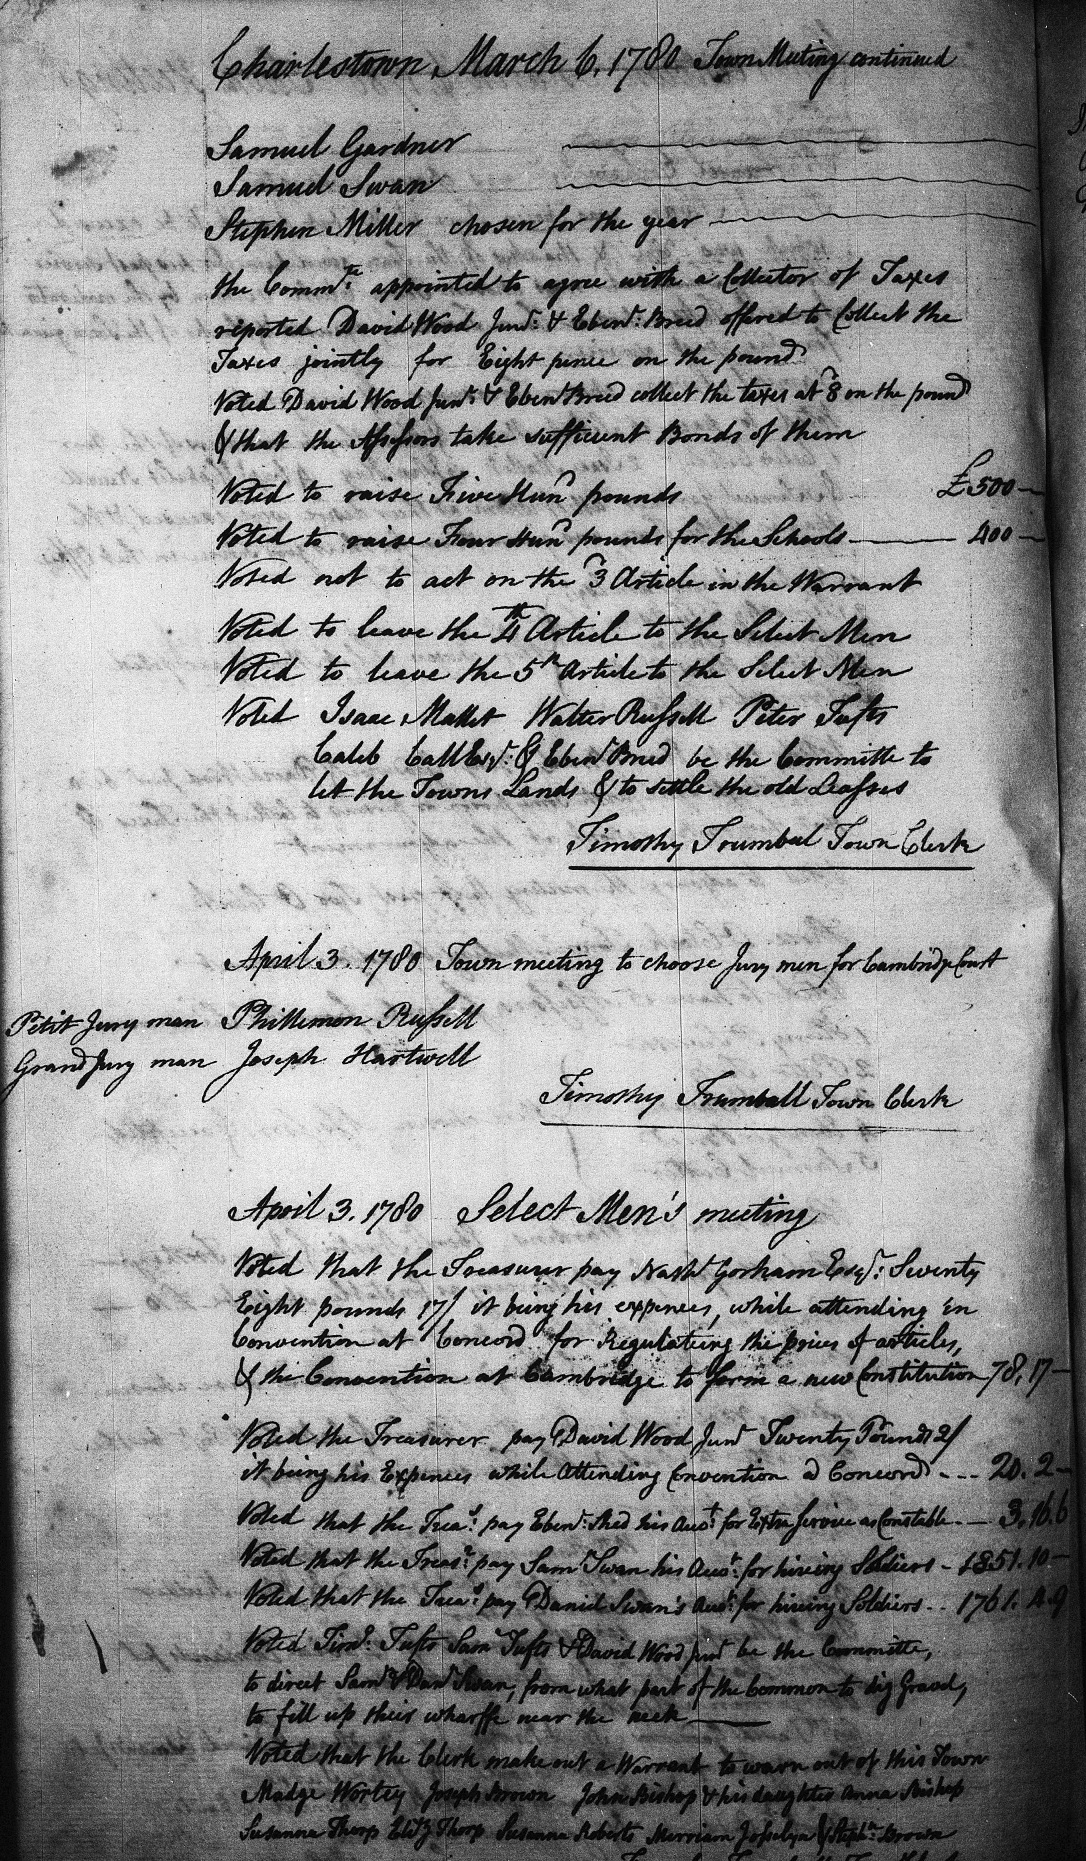 Charlestown, March 6, 1780 Town Meeting continued
Samuel Gardner
Samuel Swan
Stephen Miller chosen for the year
the Commte. appointed to agree with a Collector of Taxes
reported David Wood Junr. & Ebenr. Breed offered to Collect the
Taxes jointly for Eight pence on the pound
Voted David Wood Junr. & Ebenr Breed collect the taxes at 8d on the pound
& that the Assessors take sufficient Bonds of them
Voted to raise Five Hund pounds £500
Voted to raise Four Hund pounds for the Schools 400
Voted not to act on the 3d Article in the Warrant
Voted to leave the 4th Article to the Select Men
Voted to leave the 5th Article to the Select Men
Voted Isaac Mallet Walter Russell Peter Tufts
Caleb Call Esqr. & Ebenr Breed be the Committe to
let the Towns Lands & to settle the old Leasses
Timothy Trumbal Town Clerk
April 3. 1780 Town meeting to choose Jury men for Cambridge Court
Petit Jury man Phillemon Russell
Grand Jury man Joseph Hartwell
Timothy Trumball Town Clerk
April 3. 1780 Select Men's meeting
Voted that the Treasurer pay Nathl Gorham Esqr. Seventy
Eight pounds 17/ it being his expences, while attending in
Convention at Concord for Regulateing the prices of articles,
& the Convention at Cambridge to form a new Constitution 78,17
Voted the Treasurer pay David Wood Junr Twenty Pounds 2/
it being his Expences while Attending Convention a Concord 20.2
Voted that the Treasr. pay Ebenr. Breed his Acct. for Extra Service as Constable 3.16.6
Voted that the Treasr. pay Saml Swan his Acct. for hireing Soldiers 1851.10
Voted that the Treasr. pay Daniel Swan's Acct. for hireing Soldiers 1761.4.9
Voted Timo. Tufts Saml Tufts & David Wood Junr be the Committe,
to direct Saml & Danl Swan, from what part of the Common to dig Gravel,
to fill up their wharffe near the neck
Voted that the Clerk make out a Warrant to warn out of this Town
Madge Wortey Joseph Brown John Bishop & his daughter Anna Bishop
Susanna Thorp Eliz Thorp Susanna Roberts Merriam Josselyn & Stephn. Brown